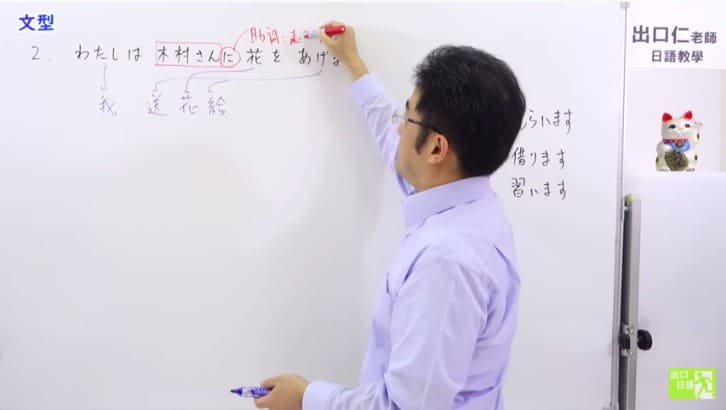 文型
助詞:表
2. わたしは 木村さんに 花を あげ
我 送 花 給
らいます
借ります
習います
出口仁老師
日語教學
出口
日語